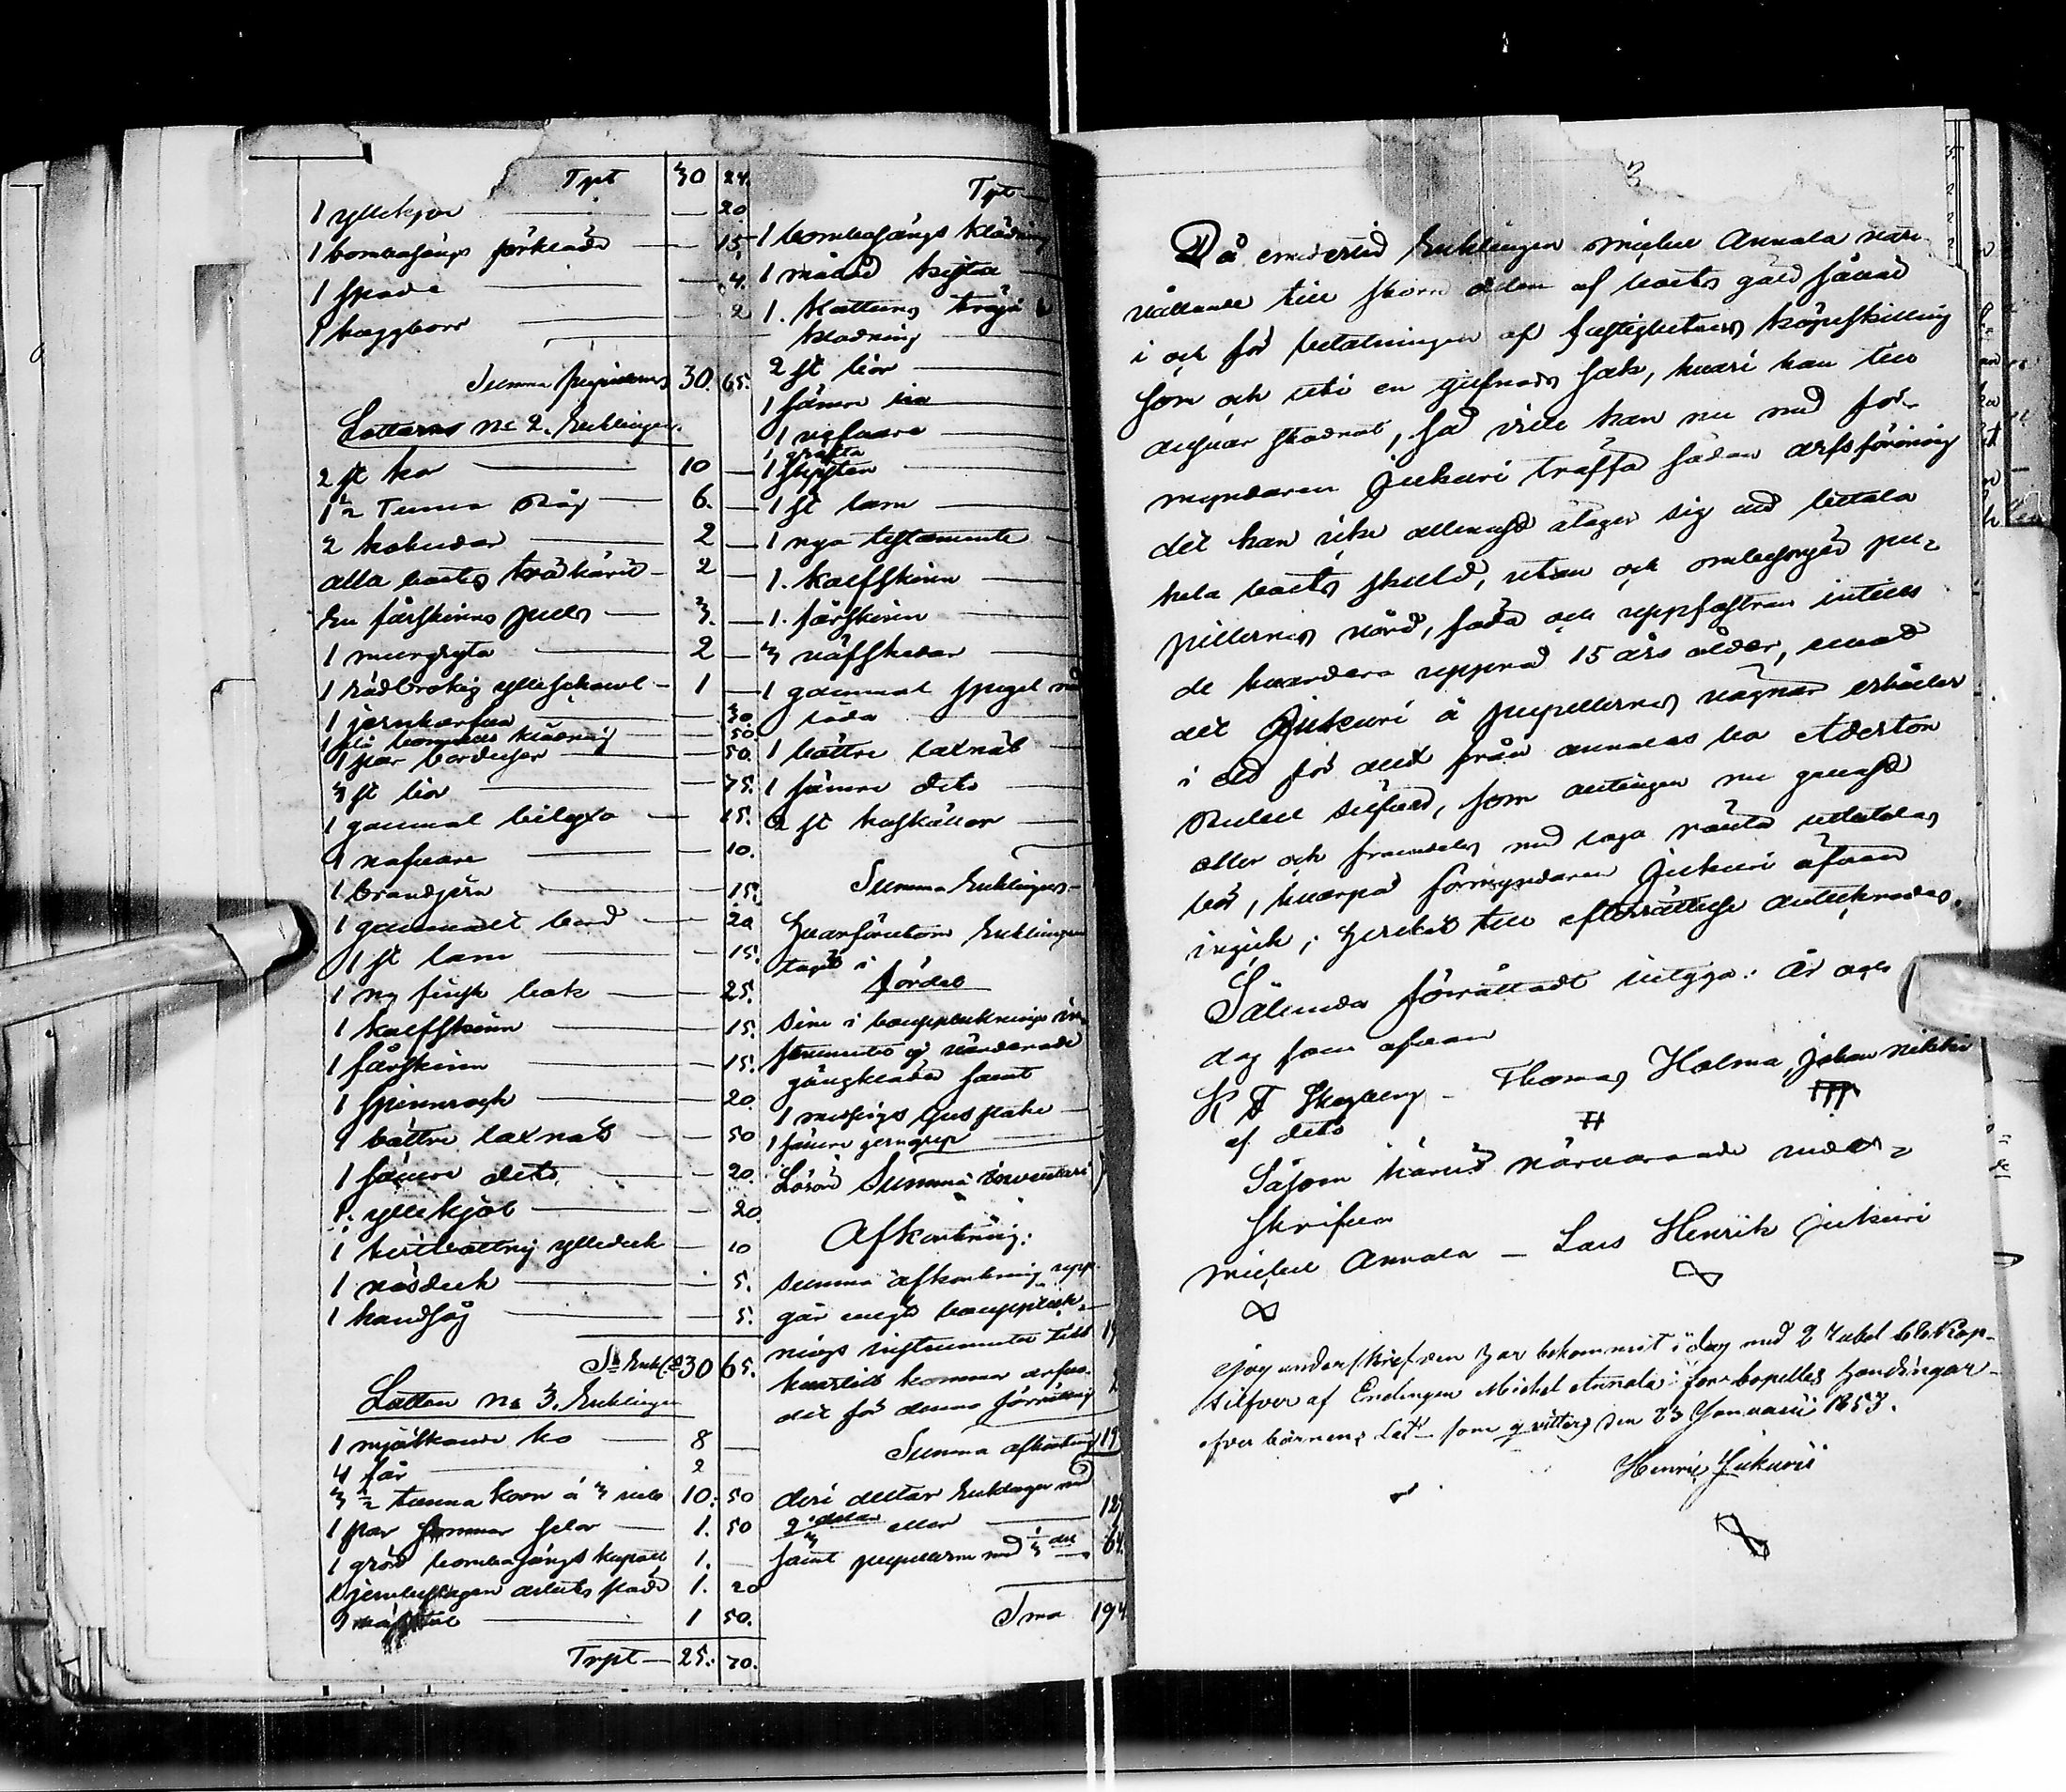 Trpt 30 24.
1 yllekjor — 20
1 bomasångs förkläde — 15
1 spade — 4.
1 huggborr — 2
Summa pupillernes 30. 65.
Lotterne No 2. Enklingen.
2 st kor — 10 —
1 1/2 Tunna Råg — 6. —
2 kokudar — 2 —
alla boets träkäril — 2 —
En fårskinns pells — 3. —
1 murgryta — 2 —
1 rödbrokig ylleschavl — 1 —
1 jernharfva — 30.
1 blå klädning — 50.
1 par borduser — 50.
3 st liar — 75.
1 gammal bilyxa — 15.
1 nafvare — 10.
1 brandjern — 15.
1 gammalt bord — 20
1 st lam — 15.
1 ny finsk bok — 25.
1 kalfskinn — 15.
1 fårskinn — 15.
1 spinnrock — 20.
1 bättre laxnät — 50
1 sämre dito — 20.
1. yllekjol — 20.
1 ylleduk — 10
1 näsduk — 5.
1 handsåg — 5.
S:a Enkl. 30 65.
Lotten No 3. Enklingen
1 mjölkande ko — 8 —
4 får — 2 —
3 1/2 tunna korn á 3 rub 10. 50
1 par selar — 1. 50
1 grön bomasångs kapott 1. —
1 jernbeslagen arbets släde 1. 20
1 — 1 50.
Trpt — 25. 70.
Trpt —
1 bomasångs klädning
1 målad kista
1. kattuns tröja
klädning
2 st liar —
1 sämre lia
1 nafvare —
1 grafta
1 —
1 st lam —
1 nya testamente —
1. kalfskinn —
1. fårskinn —
3 väfskedar —
1 gammal spegel med
låda —
1 bättre laxnät —
1 sämre dito —
2 st koskällor —
Summa Enklingens —
Hvarförutom Enklingen
tagit i
fördel
sine i bouppteknings in-
strumentet ej värderade
gångkläder samt
1 messings ljusstake —
1 sämre
Lösöre Summa inventarii
Afkortning:
Summa afkortning upp-
går enligt bouppteck-
nings instrumentet till 19
hvartill kommer arfvo-
det för denna förrättning 2
Summa afkortning 19
deri deltar Enklingen med
2/3 delar eller — 129
samt pupillerne med 1/3 del 64.
Sma 194
3
Då emedlertid Enklingen Michel Annala varit
vållande till större delen af boets gäld såväl
i och för betalningen af fastighetens köpeskilling
som och uti en giftmåls sak, hvari han till
ansvar stadnat, så ville han nu med för-
myndaren Jukuri träffa sådan arfsförening
det han icke allenast åtager sig att betala
hela boets skuld, utan och ombesörjer pu-
pillernes vård, föda och uppfostran intills
de hvardera uppnå 15 års ålder, emot
det Jukuri å pupillernes vägnar erhåller
i ett för allt från Annalas bo Aderton
Rubel silfver, som antingen nu genast
eller och framdeles med laga ränta utbetalas
bör, hvarpå förmyndaren Jukuri äfven
ingick; hvilket till efterrättelse antecknades.
Sålunda förrättadt intyga: År och
dag som ofvan
K F Skogberg — Thomas Holma, Johan Nikki
af dito
Såsom härvid närvarande under-
skrifven
Michel Annala — Lars Henrik Jukuri
Jag underskrifven har bekommit i dag med 2 rubel 68 Kop-
silfver af Enclingen Michel Annala för handlingar
öfver Barnens Lått som qvitteras Den 23 Januarii 1853.
Henric Jukurii